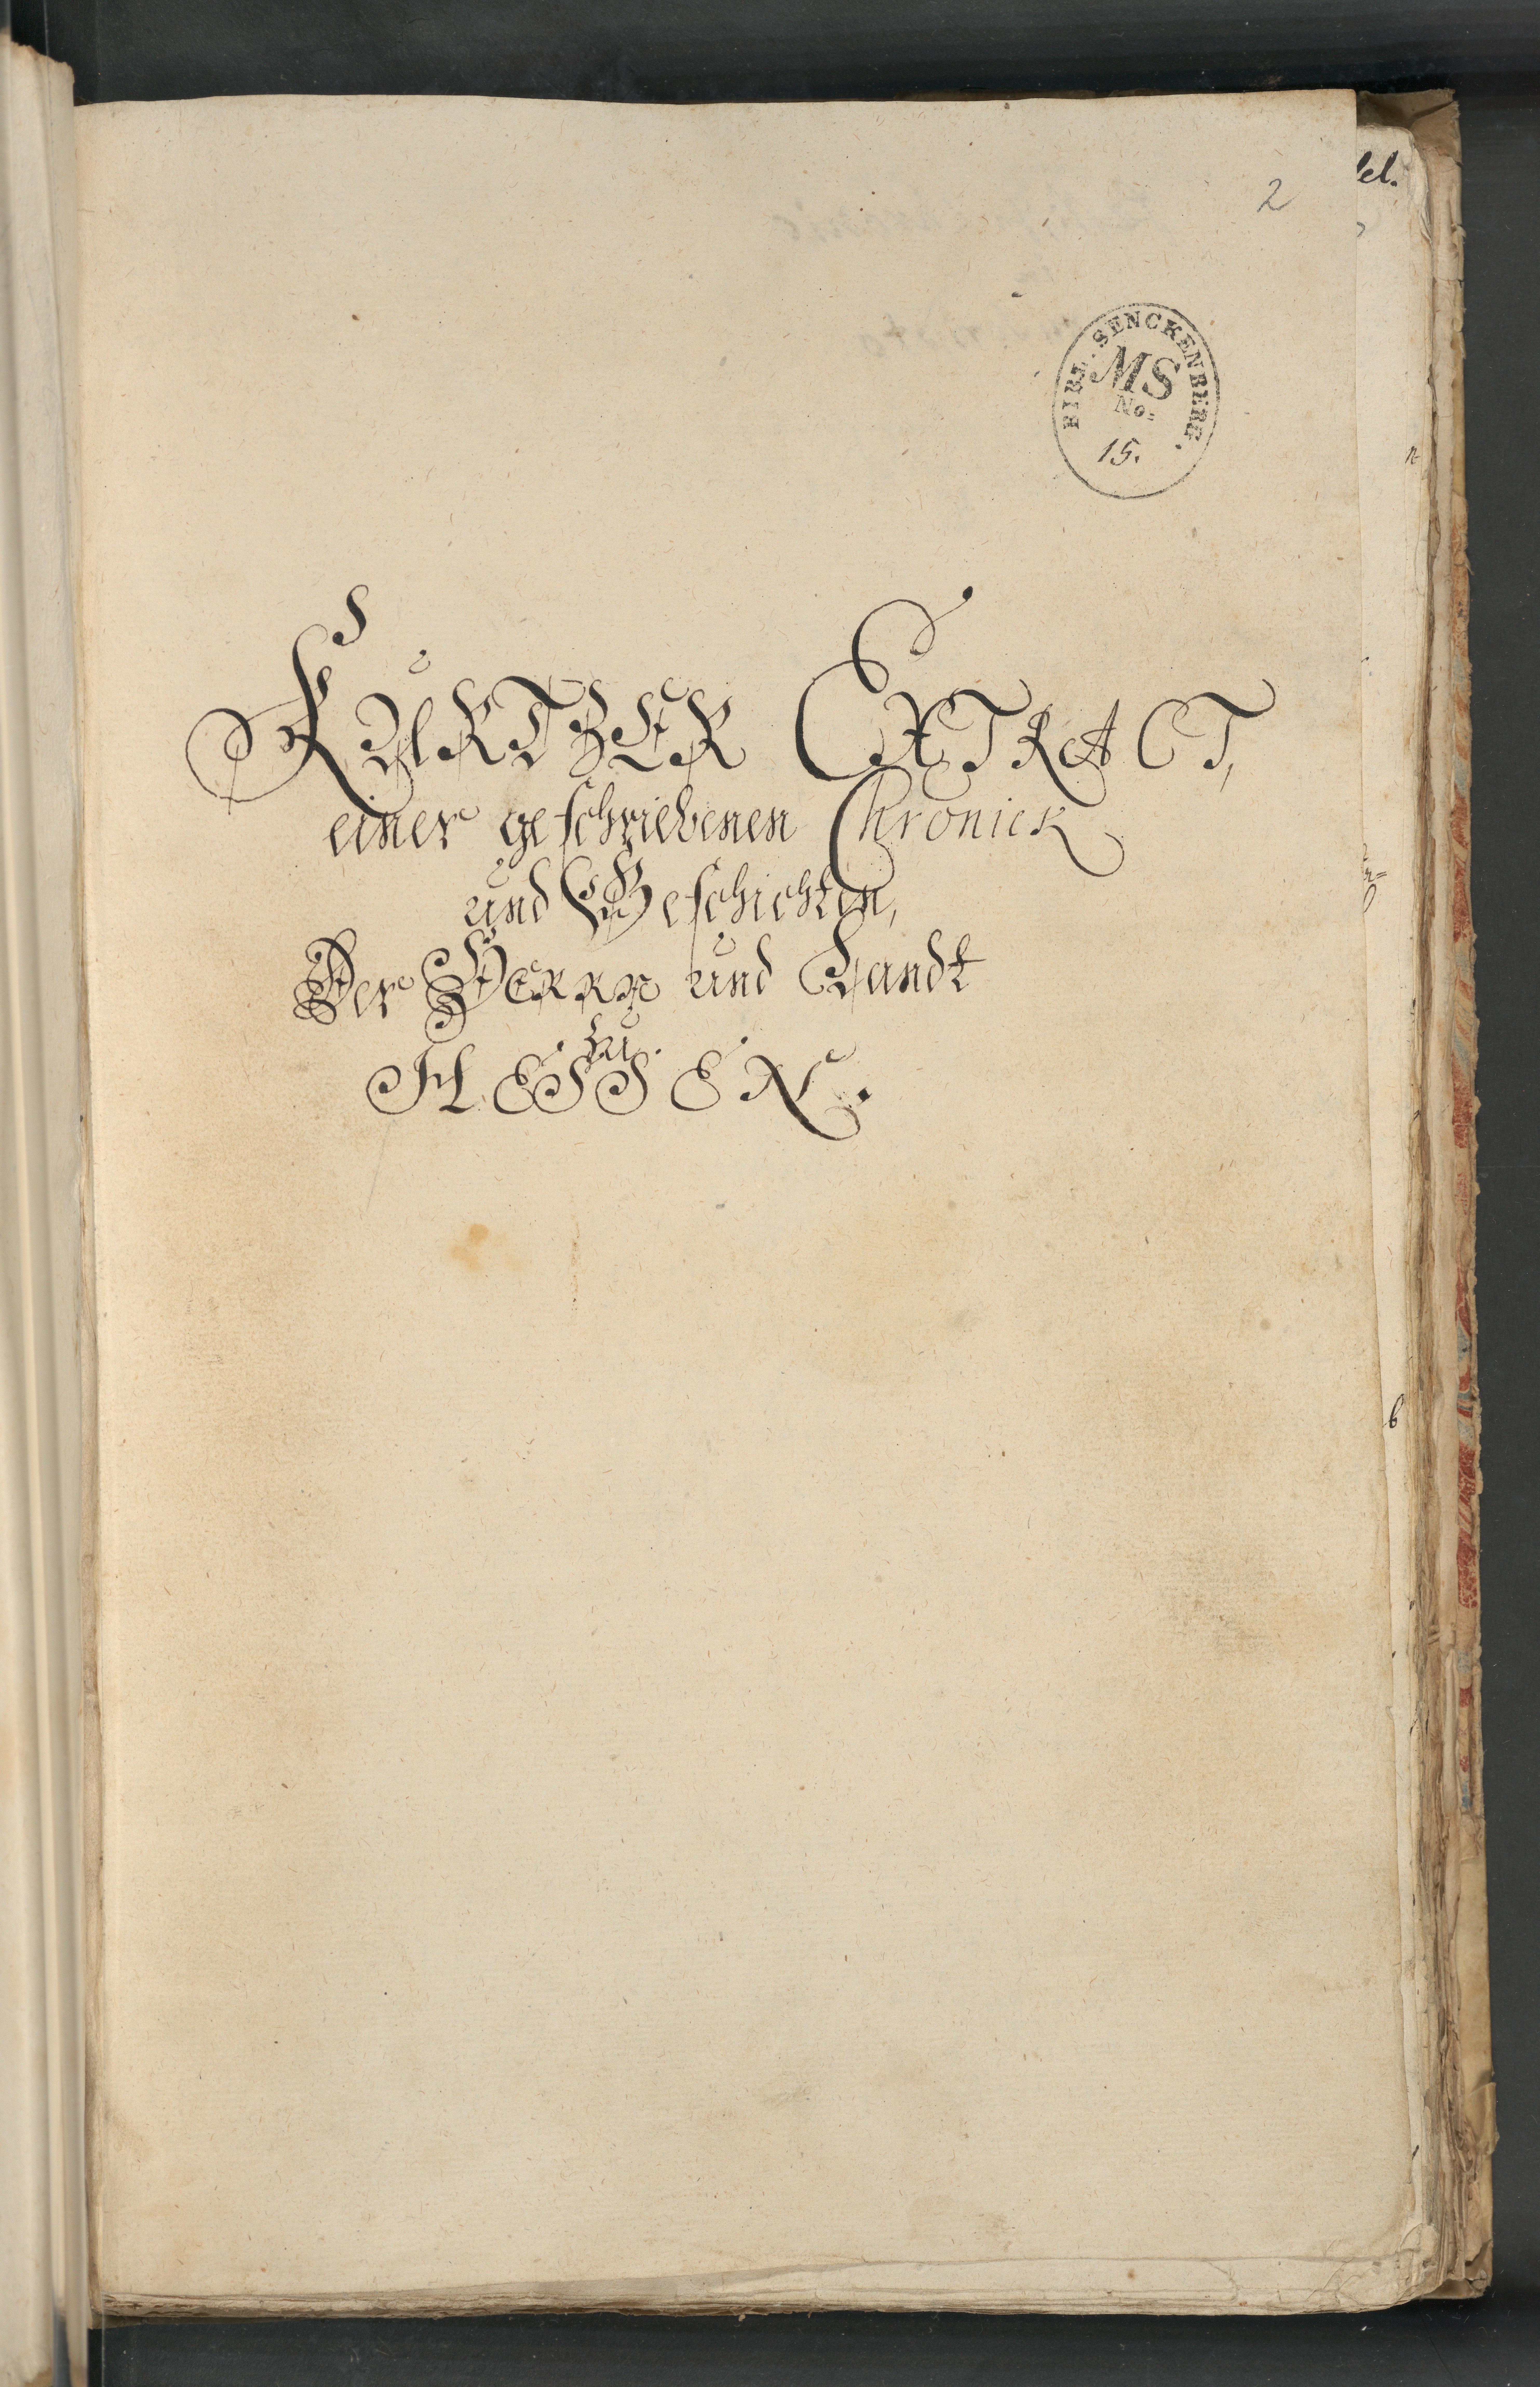 2
BIBL. SENCKENBERG.
MS
No:
15.
KURTZER EXTRACT,
einer geschriebenen Chronick
und Geschichten,
Der HERRN und Landt
zu.
HESSEN.